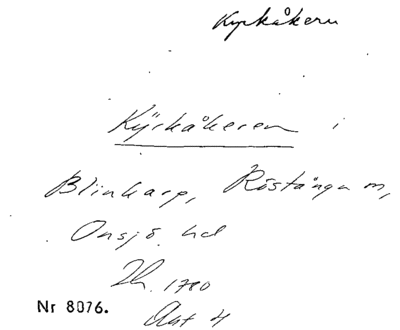 Kyrkåkern
Kÿrkåkeren i
Blinkarp, Röstånga sn,
Onsjö hd
1780
Akt 4
Nr 8076.